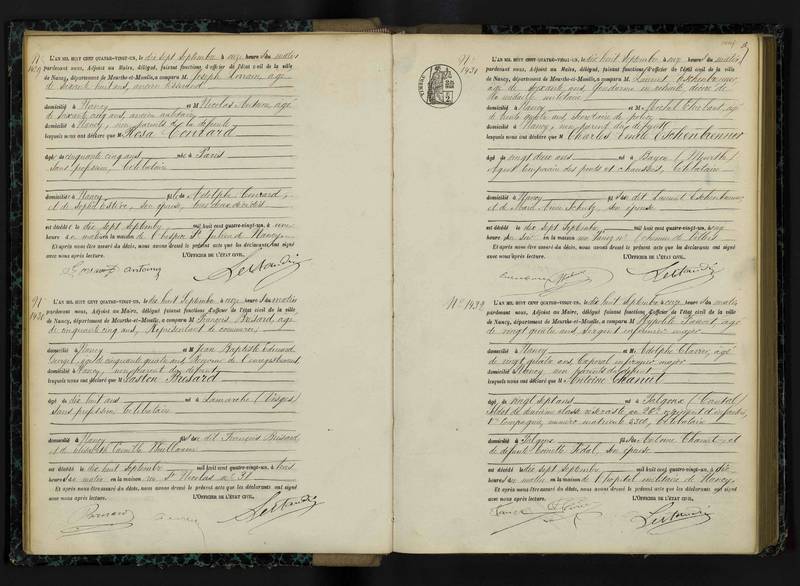 N° 1429
L'AN MIL HUIT CENT QUATRE-VINGT-UN, le dix sept Septembre à onze heures du matin
pardevant nous, Adjoint au Maire, délégué, faisant fonctions d'officier de l'état civil de la ville
de Nancy, département de Meurthe-et-Moselle, a comparu M Joseph Lorrain, âgé
de soixante huit ans, ancien
domicilié à Nancy et M Nicolas Antoine, âgé
de soixante cinq ans, ancien
domicilié à Nancy, non parents de la défunte
lesquels nous ont déclaré que M Rosa Conrard
âgée cinquante cinq ans née à Paris
sans profession, célibataire
domiciliée à Nancy fille de Adolphe Conrard,
et de Sophie, son épouse, tous deux décédés
est décédée le dix sept Septembre mil huit cent quatre-vingt-un, à une
heure du matin en la maison de l'hospice St Julien de Nancy
Et après nous être assuré du décès, nous avons dressé le présent acte que les déclarants ont signé
avec nous après lecture. L'OFFICIER DE L'ÉTAT CIVIL,
antoine
N° 1430
L'AN MIL HUIT CENT QUATRE-VINGT-UN, le dix huit Septembre à onze heures du matin
pardevant nous, Adjoint au Maire, délégué, faisant fonctions d'officier de l'état civil de la ville
de Nancy, département de Meurthe-et-Moselle, a comparu M François Brisard, âgé
de cinquante cinq ans, Représentant de commerce,
domicilié à Nancy et M Jean Baptiste Edouard
âgé de cinquante quatre ans, de l'enregistrement,
domicilié à Nancy, non parent du défunt
lesquels nous ont déclaré que M Gaston Brisard
âgé dix huit ans né à Lamarche (Vosges)
sans profession Célibataire
domicilié à Nancy fils du dit François Brisard
et de Elisabeth Camille Vuillaume
est décédé le dix huit Septembre mil huit cent quatre-vingt-un, à trois
heures du matin en la maison rue St Nicolas n° 31
Et après nous être assuré du décès, nous avons dressé le présent acte que les déclarants ont signé
avec nous après lecture. L'OFFICIER DE L'ÉTAT CIVIL,
N° 1431
L'AN MIL HUIT CENT QUATRE-VINGT-UN, le dix huit Septembre à onze heures du matin
pardevant nous, Adjoint au Maire, délégué, faisant fonctions d'officier de l'état civil de la ville
de Nancy, département de Meurthe-et-Moselle, a comparu M Laurent Eschenbrenner
âgé de soixante ans, Gendarme en retraite décoré de
la médaille militaire
domicilié à Nancy et M âgé
de trente quatre ans, secrétaire de police
domicilié à Nancy, non parent du défunt
lesquels nous ont déclaré que M Charles Emile Eschenbrenner
âgé de vingt deux ans né à Bayon (Meurthe)
Agent temporaire des ponts et chaussées, célibataire
domicilié à Nancy fils du dit Laurent Eschenbrenner
et de Marie Anne Schutz, son épouse
est décédé le dix sept Septembre mil huit cent quatre-vingt-un, à onze
heures du soir en la maison sise Nancy, chemin de Villers
Et après nous être assuré du décès, nous avons dressé le présent acte que les déclarants ont signé
avec nous après lecture. L'OFFICIER DE L'ÉTAT CIVIL,
N° 1432
L'AN MIL HUIT CENT QUATRE-VINGT-UN, le dix huit Septembre à onze heures du matin
pardevant nous, Adjoint au Maire, délégué, faisant fonctions d'officier de l'état civil de la ville
de Nancy, département de Meurthe-et-Moselle, a comparu M Hypolite, âgé
de vingt quatre ans, Sergent infirmier major
domicilié à Nancy et M Adolphe Claire, âgé
de vingt quatre ans, Caporal infirmier major
domicilié à Nancy, non parents du défunt
lesquels nous ont déclaré que M Antoine Chanut
âgé de vingt sept ans né à Jalgoux (Cantal)
Soldat de deuxième classe réserviste au 26e régiment d'infanterie,
1re Compagnie, numéro matricule 2300, célibataire
domicilié à fils de Antoine Chanut et
de défunte Vidal, son épouse
est décédé le dix sept Septembre mil huit cent quatre-vingt-un, à dix
heures du matin en la maison de l'hôpital militaire de Nancy
Et après nous être assuré du décès, nous avons dressé le présent acte que les déclarants ont signé
avec nous après lecture. L'OFFICIER DE L'ÉTAT CIVIL,